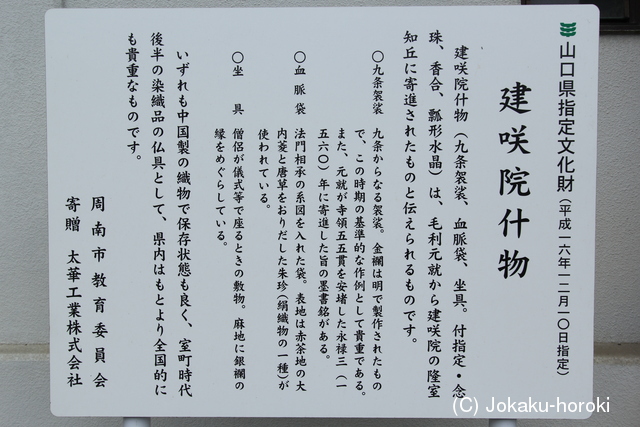 山口県指定文化財(平成一六年一二月一〇日指定)
建咲院什物
建咲院什物(九条袈裟、血脈袋、坐具。付指定・念
珠、香合、瓢形水晶)は、毛利元就から建咲院の隆室
知丘に寄進されたものと伝えられるものです。
〇九条袈裟 九条からなる袈裟。金襴は明で製作されたもの
で、この時期の基準的な作例として貴重である。
また、元就が寺領五五貫を安堵した永禄三(一
五六〇)年に寄進した旨の墨書銘がある。
〇血脈袋 法門相承の系図を入れた袋。表地は赤茶地の大
内菱と唐草をおりだした朱珍(絹織物の一種)が
使われている。
〇坐具 僧侶が儀式等で座るときの敷物。麻地に銀襴の
縁をめぐらしている。
いずれも中国製の織物で保存状態も良く、室町時代
後半の染織品の仏具として、県内はもとより全国的に
も貴重なものです。
周南市教育委員会
寄贈 太華工業株式会社
(C) Jokaku-horoki